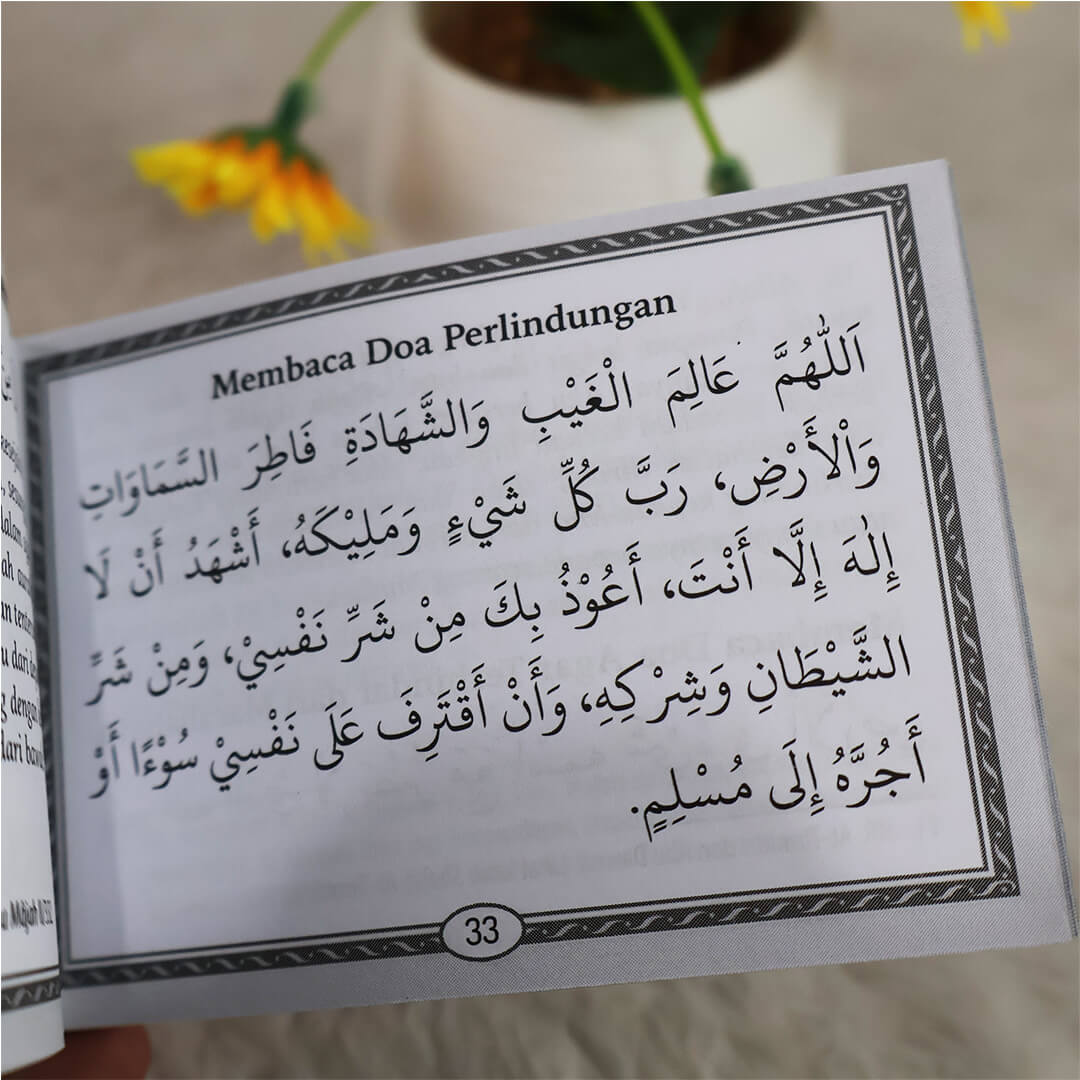 Membaca Doa Perlindungan
اَللّٰهُمَّ عَالِمَ الْغَيْبِ وَالشَّهَادَةِ فَاطِرَ السَّمَاوَاتِ
وَاْلأَرْضِ، رَبَّ كُلِّ شَيْءٍ وَمَلِيْكَهُ، أَشْهَدُ أَنْ لَا
إِلٰهَ إِلَّا أَنْتَ، أَعُوْذُ بِكَ مِنْ شَرِّ نَفْسِيْ، وَمِنْ شَرِّ
الشَّيْطَانِ وَشِرْكِهِ، وَأَنْ أَقْتَرِفَ عَلَى نَفْسِيْ سُوْءًا أَوْ
أَجُرَّهُ إِلَى مُسْلِمٍ.
33